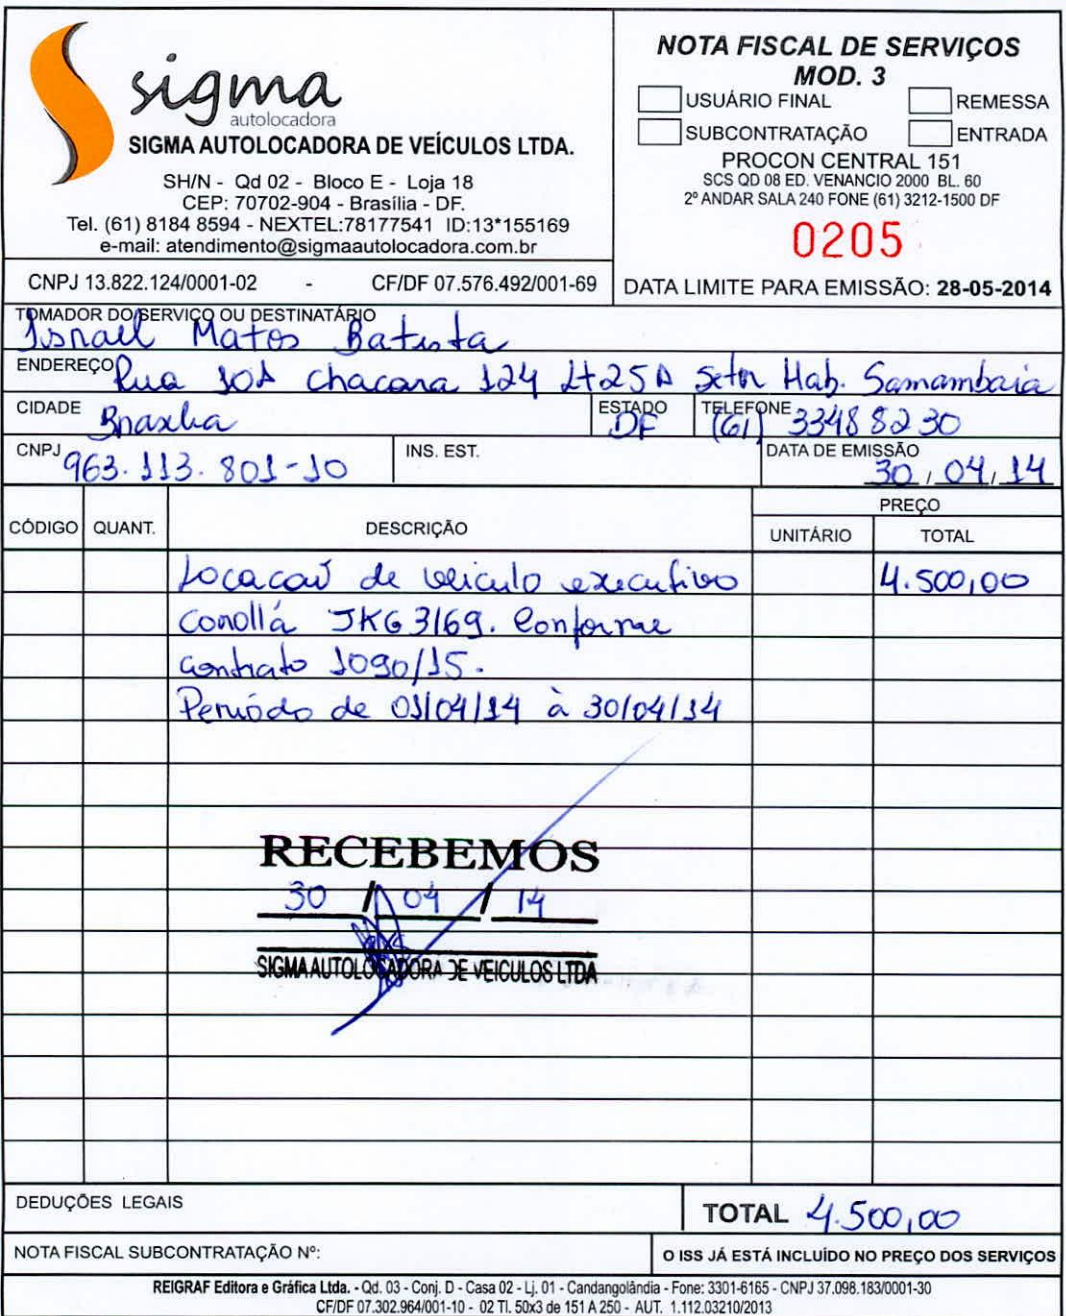 sigma
autolocadora
SIGMA AUTOLOCADORA DE VEÍCULOS LTDA.
SH/N - Qd 02 - Bloco E - Loja 18
CEP: 70702-904 - Brasília - DF.
Tel. (61) 8184 8594 - NEXTEL:78177541 ID:13*155169
e-mail: atendimento@sigmaautolocadora.com.br
CNPJ 13.822.124/0001-02 - CF/DF 07.576.492/001-69
NOTA FISCAL DE SERVIÇOS
MOD. 3
USUÁRIO FINAL REMESSA
SUBCONTRATAÇÃO ENTRADA
PROCON CENTRAL 151
SCS QD 08 ED. VENANCIO 2000 BL. 60
2º ANDAR SALA 240 FONE (61) 3212-1500 DF
0205
DATA LIMITE PARA EMISSÃO: 28-05-2014
TOMADOR DO SERVIÇO OU DESTINATÁRIO
Israel Matos Batista
ENDEREÇO Rua 10A chacara 124 Lt25A Setor Hab. Samambaia
CIDADE Brasilia ESTADO DF TELEFONE (61) 33488230
CNPJ 963.113.801-10 INS. EST. DATA DE EMISSÃO 30/04/14
CÓDIGO QUANT. DESCRIÇÃO PREÇO
UNITÁRIO TOTAL
Locacaõ de veiculo executivo 4.500,00
Corollá JKG3169. Conforme
contrato 1090/15.
Período de 01/04/14 à 30/04/14
RECEBEMOS
30/04/14
SIGMA AUTOLOCADORA DE VEICULOS LTDA
DEDUÇÕES LEGAIS TOTAL 4.500,00
NOTA FISCAL SUBCONTRATAÇÃO Nº: O ISS JÁ ESTÁ INCLUÍDO NO PREÇO DOS SERVIÇOS
REIGRAF Editora e Gráfica Ltda. - Qd. 03 - Conj. D - Casa 02 - Lj. 01 - Candangolândia - Fone: 3301-6165 - CNPJ 37.098.183/0001-30
CF/DF 07.302.964/001-10 - 02 Tl. 50x3 de 151 A 250 - AUT. 1.112.03210/2013